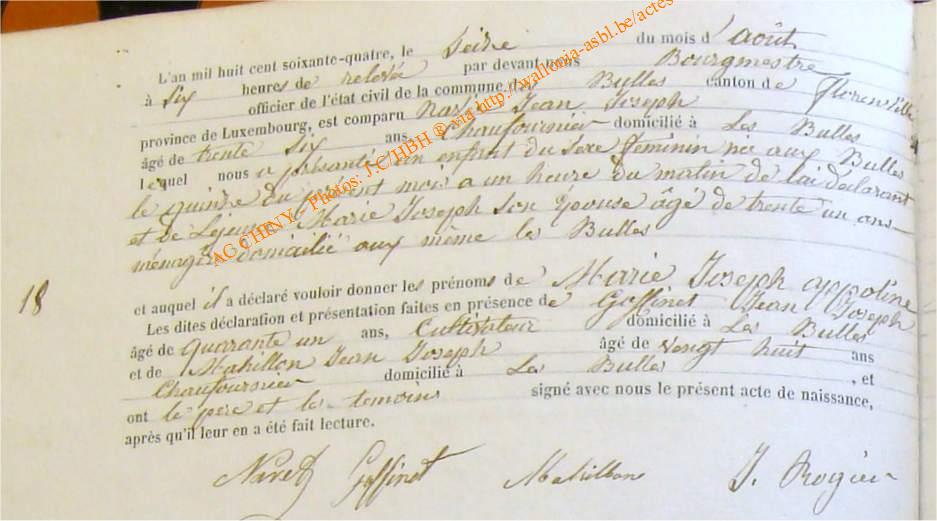 L'an mil huit cent soixante-quatre, le Seize du mois d'août
à Six heures de relevée par devant nous Bourgmestre
officier de l'état civil de la commune des Bulles canton de Florenville
province de Luxembourg, est comparu Jean Joseph
âgé de trente Six ans Chaufournier domicilié à Les Bulles
lequel nous a présenté un enfant du sexe féminin née aux Bulles
le quinze du présent mois a un heure du matin de lui déclarant
et de Lejeune Marie Joseph son épouse âgé de trente un ans
ménagère domicilié aux même les Bulles
18
et auquel il a déclaré vouloir donner les prénoms de Marie Joseph appoline
Les dites déclaration et présentation faites en présence de Goffinet Jean Joseph
âgé de quarante un ans, Cultivateur domicilié à Les Bulles
et de Mahillon Jean Joseph âgé de vingt huit ans
Chaufournier domicilié à Les Bulles , et
ont le père et les temoins signé avec nous le présent acte de naissance,
après qu'il leur en a été fait lecture.
Goffinet Mahillon J. Rogier
AG CHINY - Photos: J.C/HBH ® via http://wallonia-asbl.be/actes